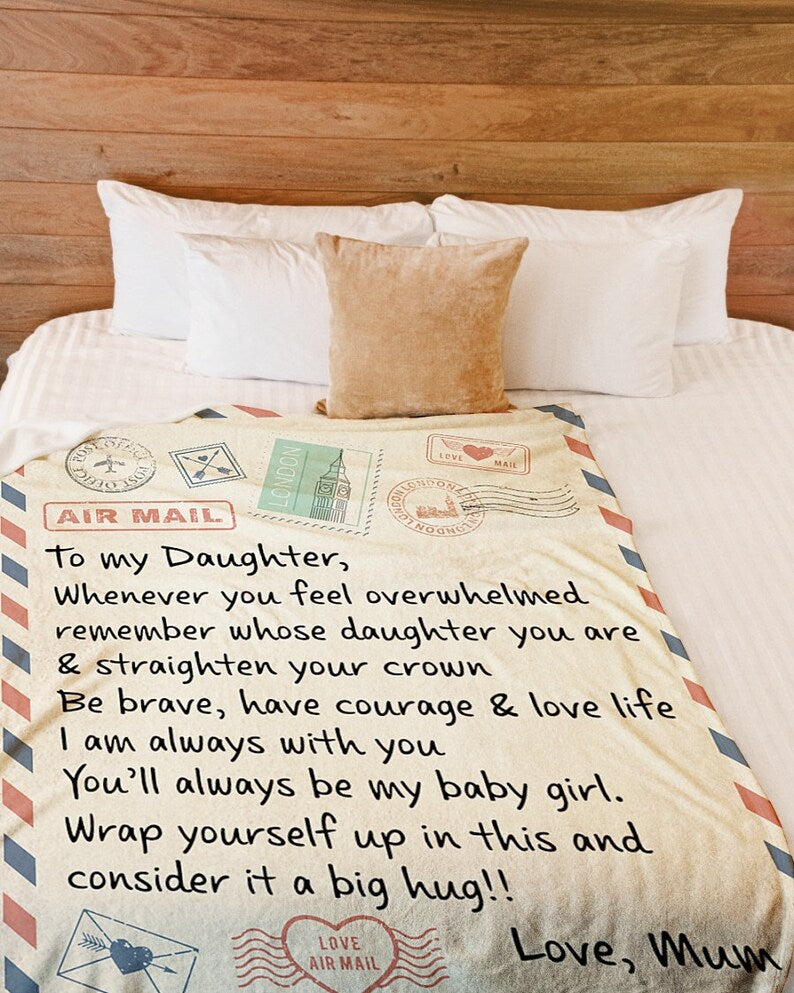 POST OFFICE POST OFFICE
LONDON
LOVE MAIL
LONDON LONDON LONDON
AIR MAIL
To my Daughter,
Whenever you feel overwhelmed
remember whose daughter you are
& straighten your crown
Be brave, have courage & love life
I am always with you
You'll always be my baby girl.
Wrap yourself up in this and
consider it a big hug!!
LOVE
AIR MAIL
Love, Mum